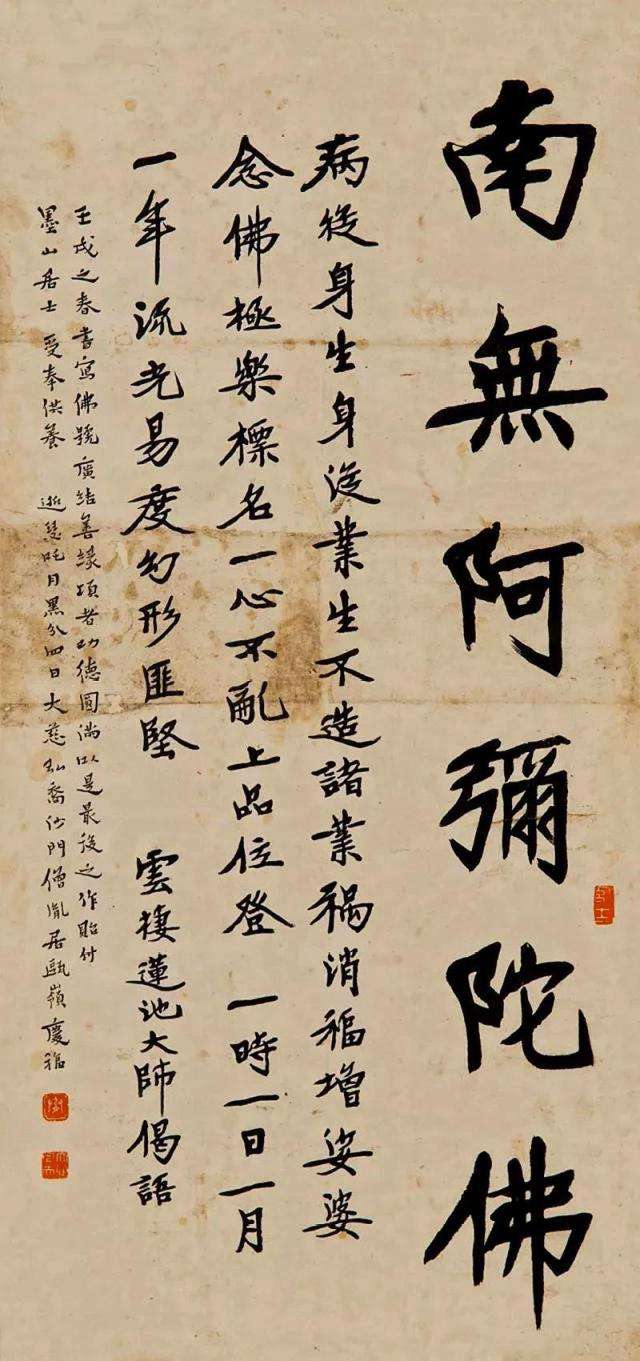 南無阿彌陀佛
病從身生身從業生不造諸業禍消福增娑婆
念佛極樂標名一心不亂上品位登 一時一日一月
一年流光易度幻形匪堅 雲棲蓮池大師偈語
壬戌之春書寫佛號廣結善緣頃者功德圓滿以是最後之作貽付
墨山居士受奉供養 逝瑟吒月黑分四日大慈弘裔沙門僧胤居甌嶺慶福